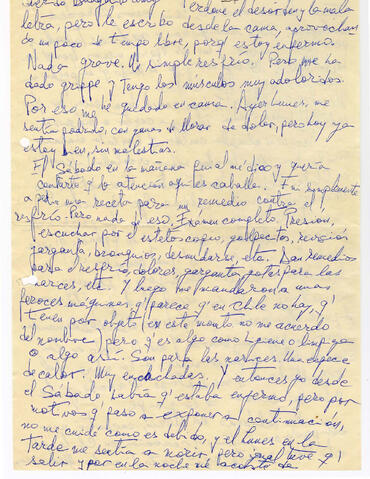 Perdone el desorden y la mala
letra, pero le escribo desde la cama, aprovechan
do un poco de tiempo libre, porq' estoy enfermo.
Nada grave. Un simple resfrío. Pero me ha
dado grippe y tengo los músculos muy adoloridos.
Por eso, me he quedado en cama. Ayer Lunes, me
sentía podrido, con ganas de llorar de dolor, pero hoy ya
estoy bien, sin molestias.
El Sábado en la mañana fui al médico y quería
contarle q' la atención aquí es caballa. Fui simplemente
a pedir una receta para un remedio contra el
resfrío. Pero nada de eso. Exámen completo. Presión,
escuchar por el estetoscopio, golpecitos, revisión
garganta, bronquios, desnudarse, etc. Dan remedios
para el resfrío, dolores, garganta, gotas para las
narices, etc. Y luego me mandaron a unas
feroces máquinas q' parece q' en Chile no hay, q'
tienen por objeto (en este minuto no me acuerdo
del nombre) pero q' es algo como
o algo así. Son para las narices. Una especie
de calor. Muy encachadas. Y entonces yo desde
el Sábado, sabía q' estaba enfermo, pero por
motivos q' paso a exponer a continuación,
no me cuidé como es debido, y el Lunes en la
tarde me sentía a morir, pero igual tuve q'
salir y por en la noche me acosté